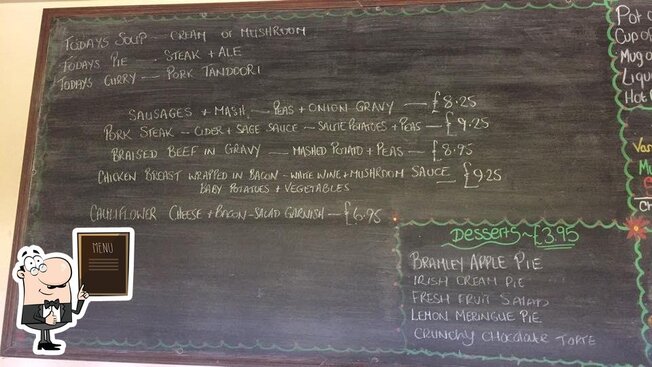 TODAYS SOUP - CREAM OF MUSHROOM
TODAYS PIE - STEAK + ALE
TODAYS CURRY - PORK TANDOORI
SAUSAGES + MASH - PEAS + ONION GRAVY - £8.25
PORK STEAK - CIDER + SAGE SAUCE - SAUTE POTATOES + PEAS - £9.25
BRAISED BEEF IN GRAVY - MASHED POTATO + PEAS - £8.95
CHICKEN BREAST WRAPPED IN BACON - WHITE WINE + MUSHROOM SAUCE - £9.25
BABY POTATOES + VEGETABLES
CAULIFLOWER CHEESE + BACON - SALAD GARNISH - £6.95
DESSERTS ~ £3.95
BRAMLEY APPLE PIE
IRISH CREAM PIE
FRESH FRUIT SALAD
LEMON MERINGUE PIE
CRUNCHY CHOCOLATE TORTE
Pot
Cup of
Mug o
Liqu
Hot
MENU